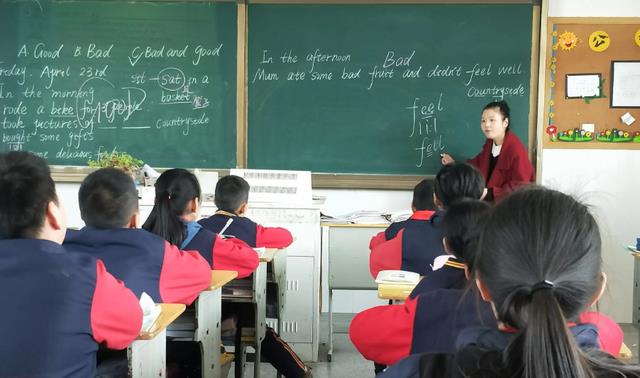 A. Good B. Bad C. Bad and good
rday. April 23rd
sit - sat in a
In the morning
basket
rode a beke for
took pictures of
Countryside
bought some gifts
some
In the afternoon Bad
Mum ate some bad fruit and didn't feel well
Countryside
feel
fell